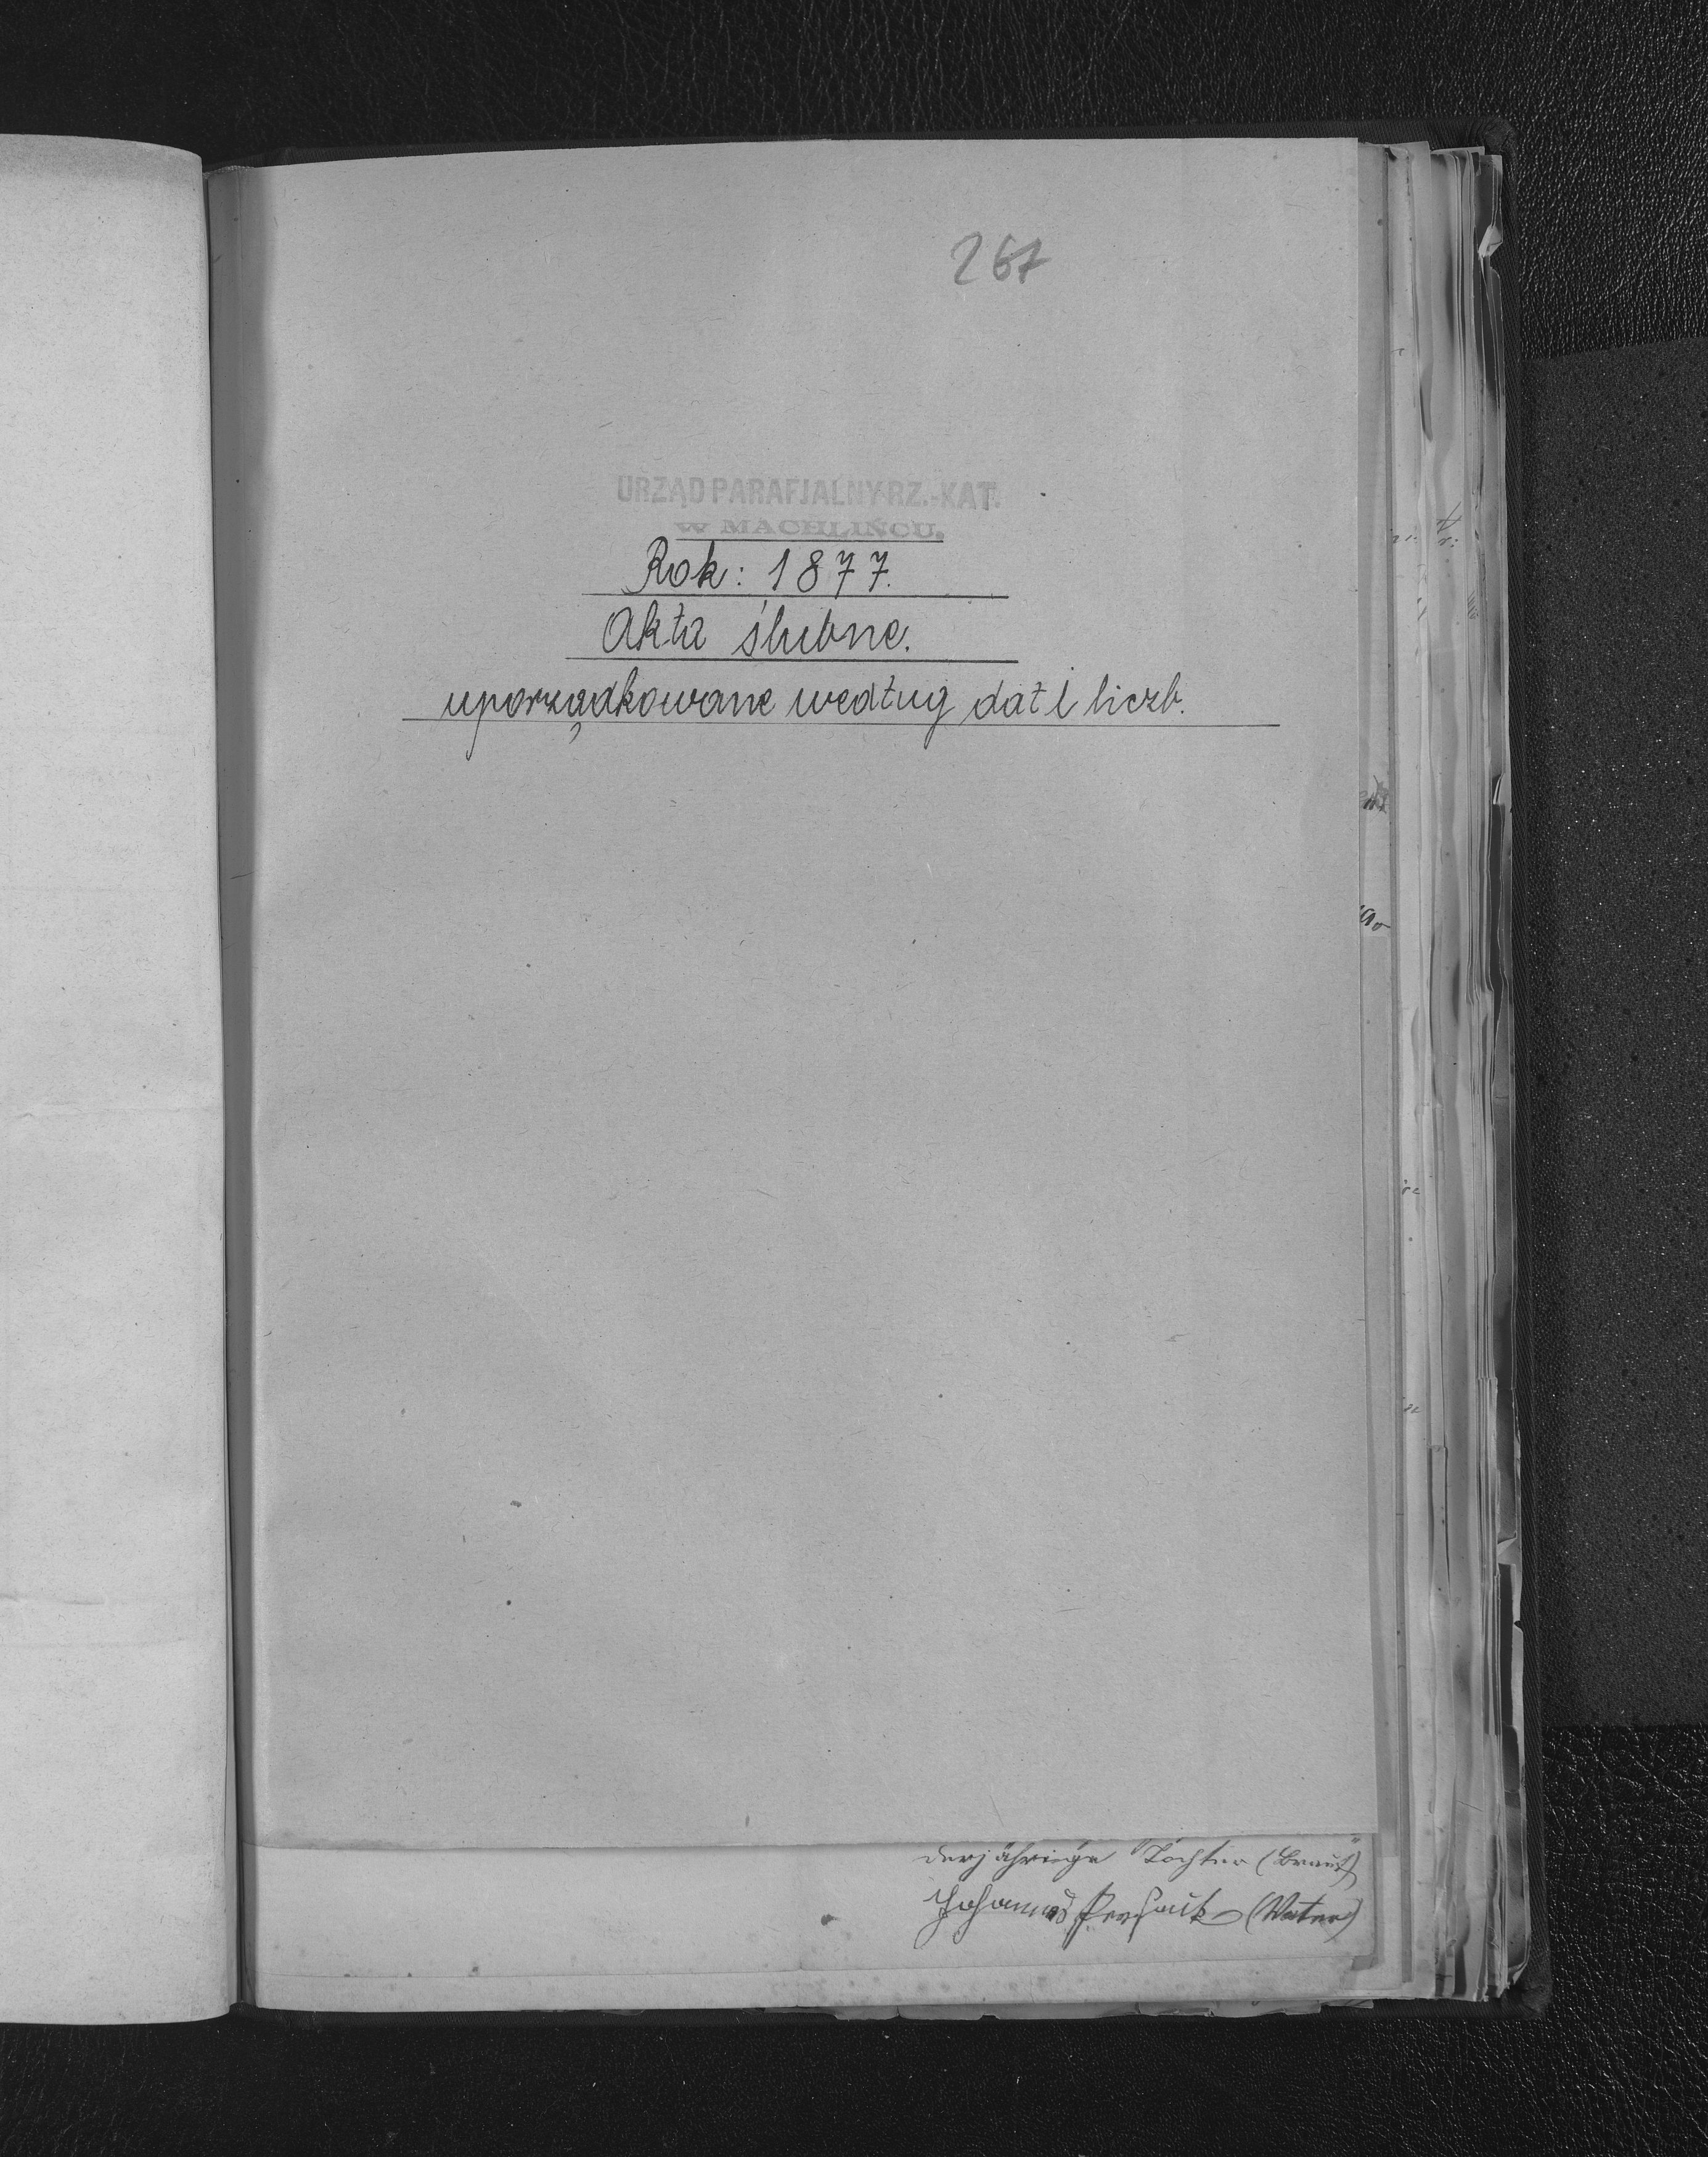 267
URZĄD PARAFJALNY RZ.-KAT.
W MACHLIŃCU.
Rok: 1877.
Akta ślubne.
uporządkowane według dat i liczb.
derjährige Tochter (Braut)
Johannes (Vater)